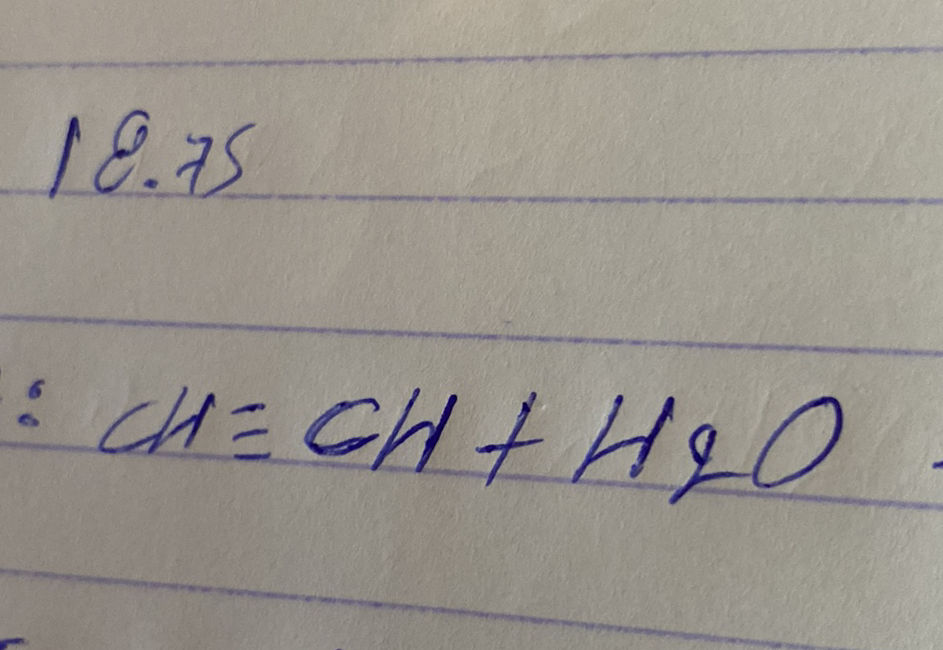 18.75
: CH≡CH + H2O -